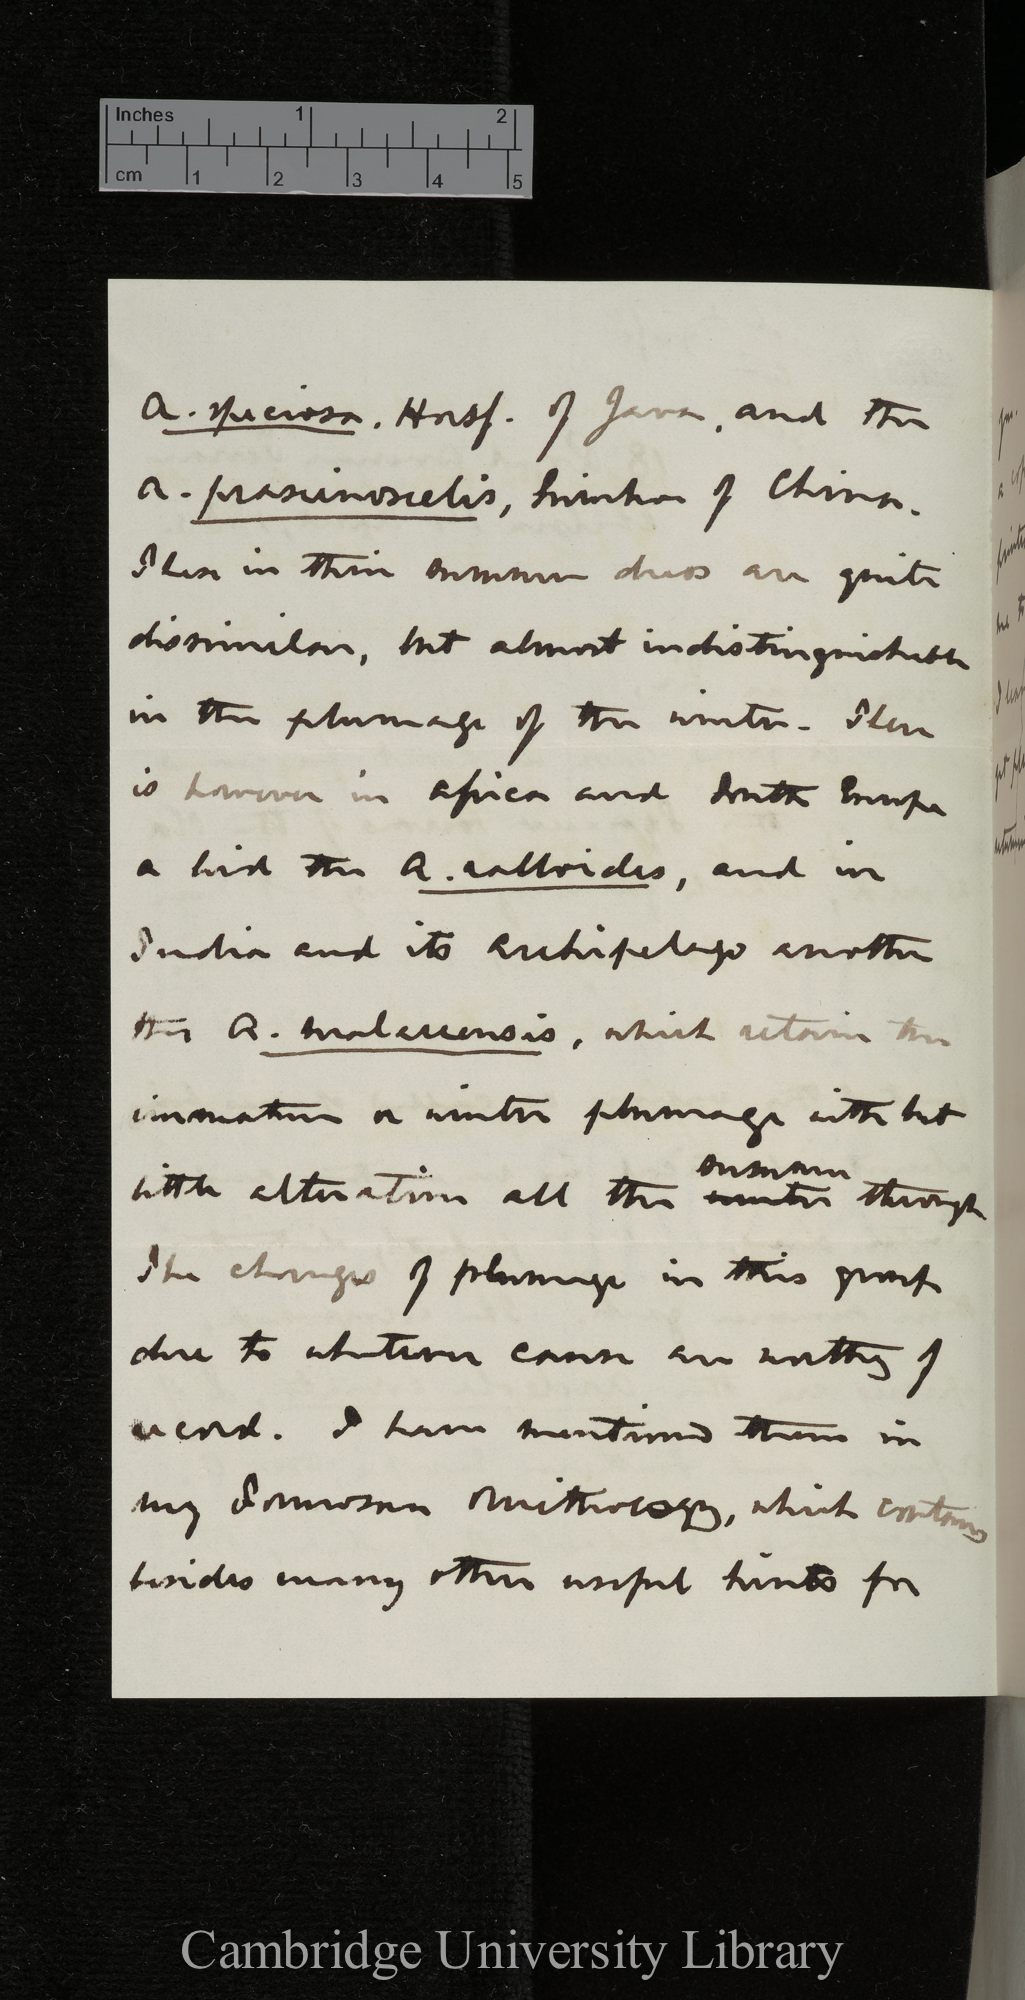 Inches 1 2
cm 1 2 3 4 5
A. speciosa, Horsf. of Java, and the
A. prasinoscelis, Swinhoe of China.
These in their summer dress are quite
dissimilar, but almost indistinguishable
in the plumage of the winter. There
is however in Africa and South Europe
a bird the A. ralloides, and in
India and its Archipelago another
the A. malaccensis, which retain the
immature or winter plumage with but
little alteration all the winter through
summer
The changes of plumage in this group
due to whatever cause are worthy of
record. I have mentioned them in
my Formosan Ornithology, which contains
besides many other useful hints for
Cambridge University Library